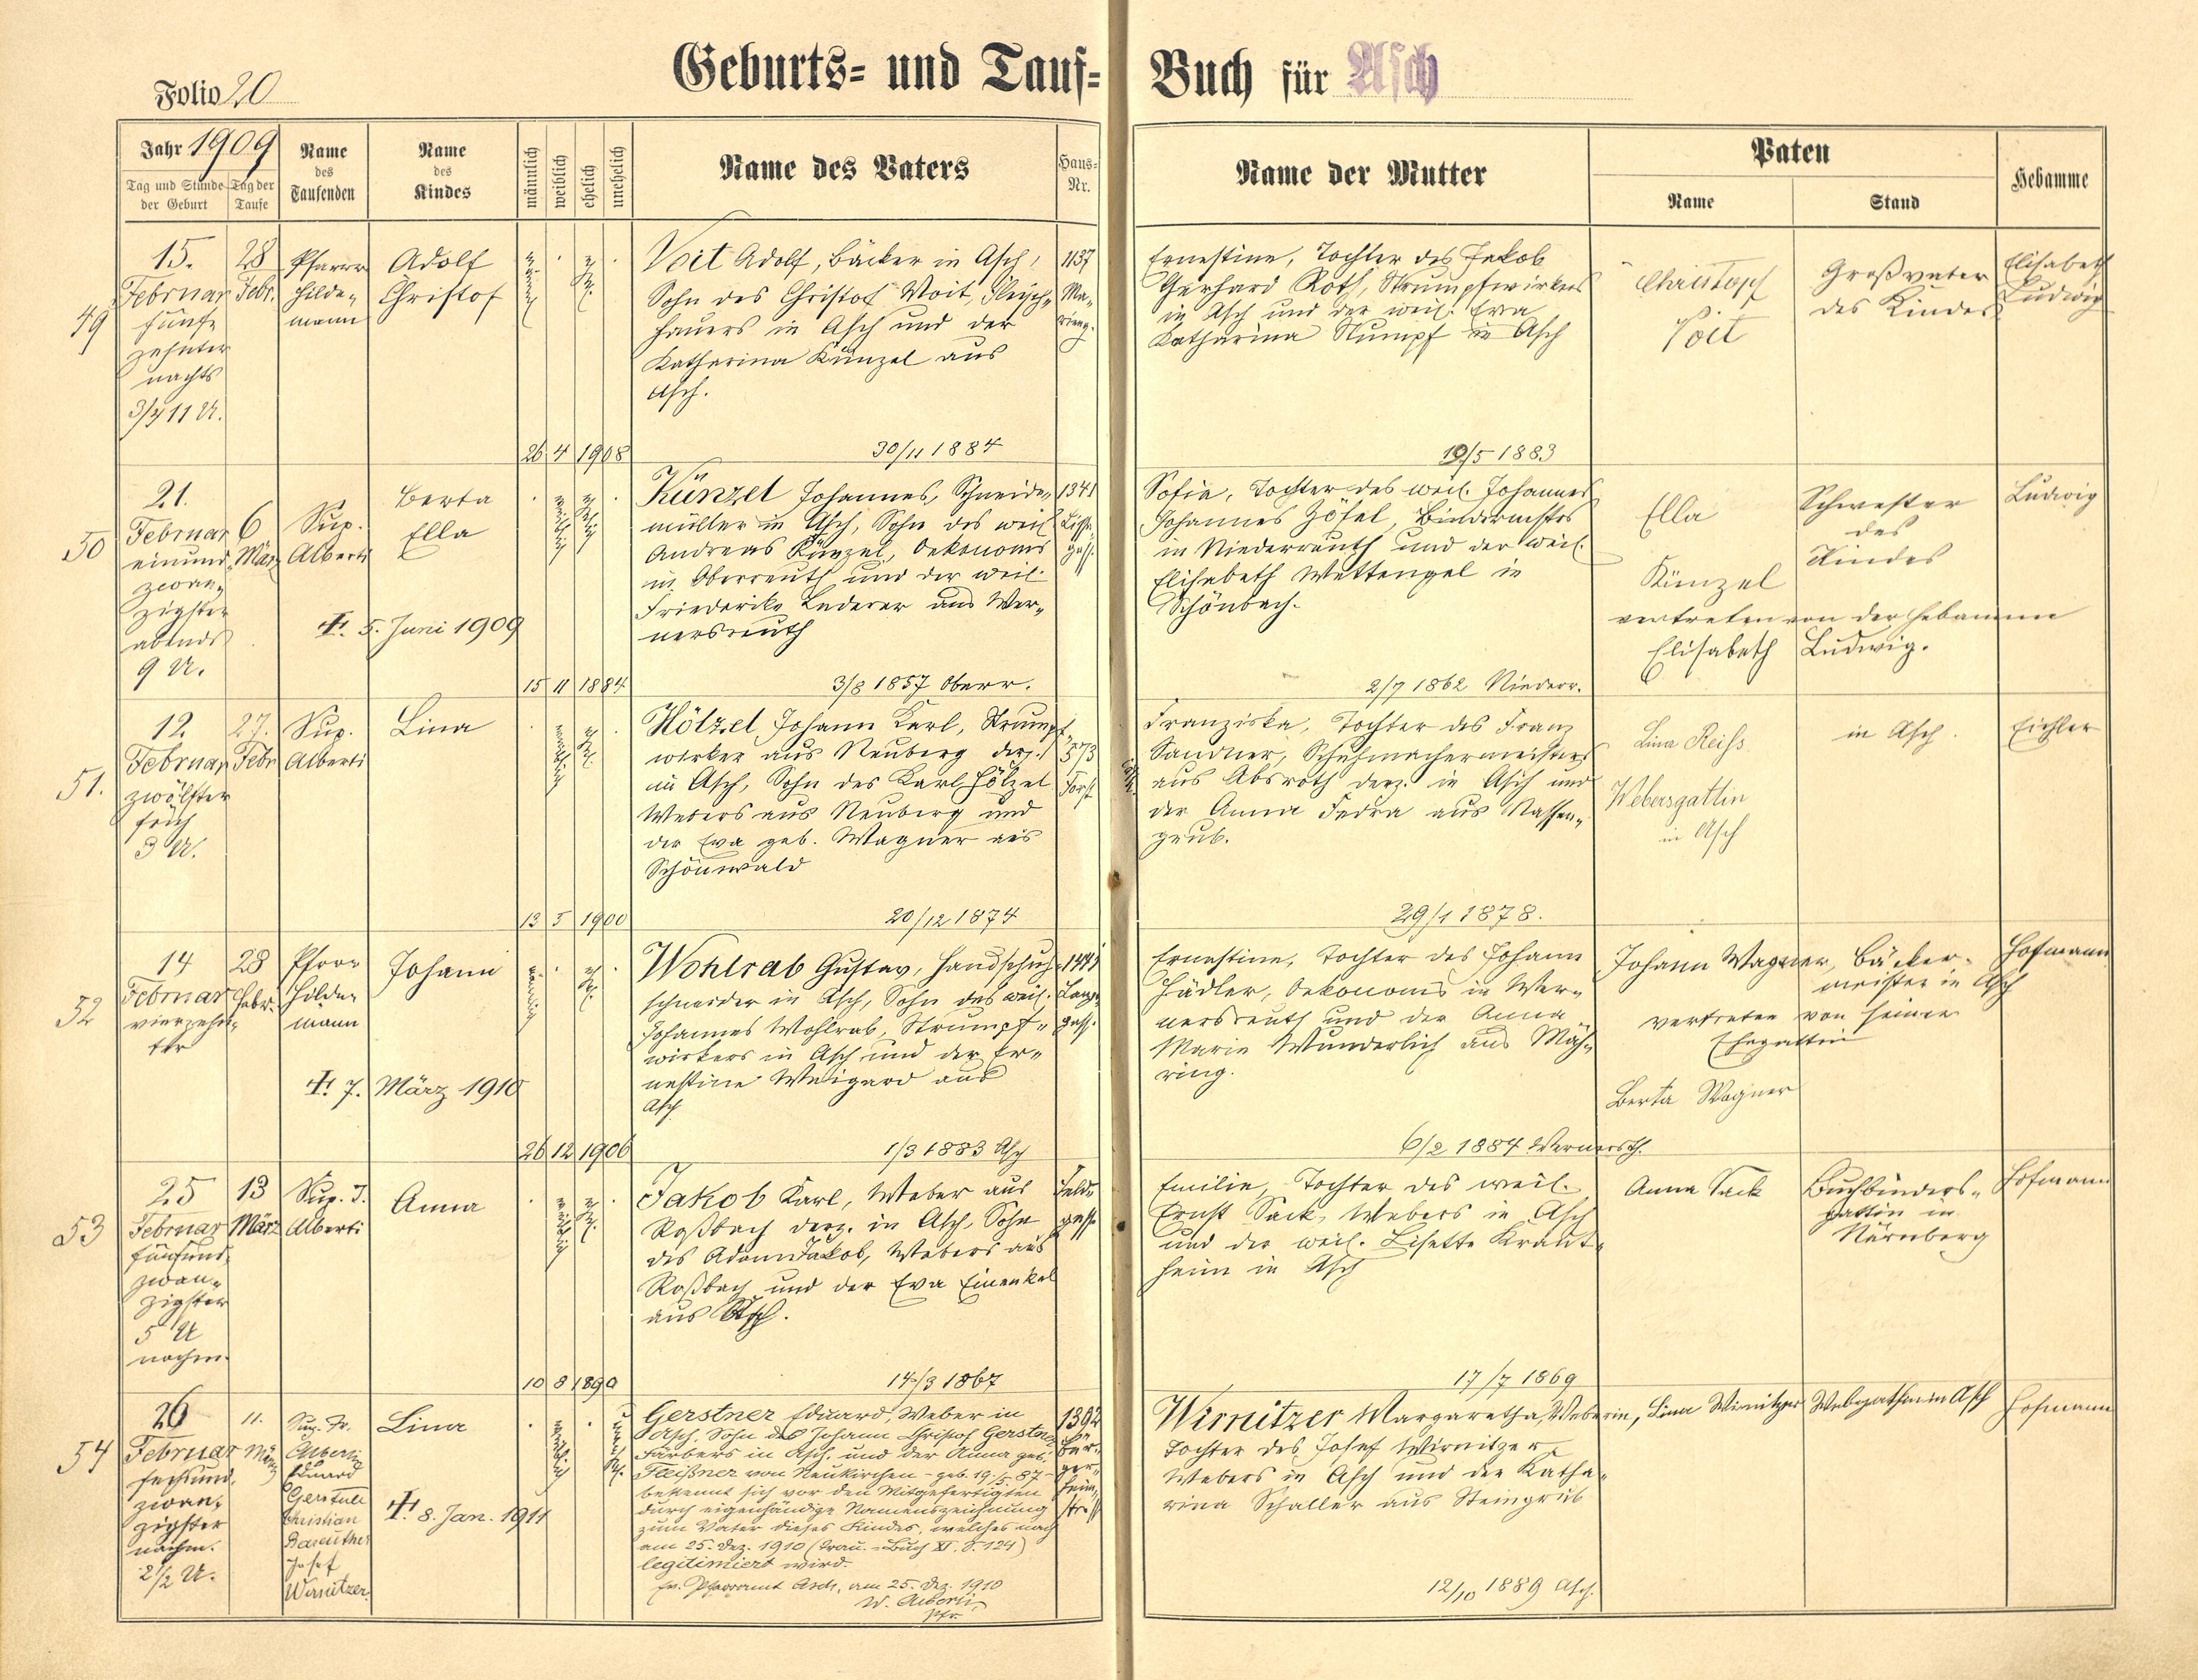 Folio 20
Geburts- und Tauf-
Buch für Asch
Jahr 1909
Tag und Stunde der Geburt
Tag der Taufe
Name des Taufenden
Name des Kindes
männlich
weiblich
ehelich
unehelich
Name des Vaters
Haus-Nr.
Name der Mutter
Paten
Name
Stand
Hebamme
49
15.
Februar
fünf-
zehnter
nachts
3/4 11 U.
28
Febr.
Pfarrer
Hilde-
mann
Adolf
Christof
männlich
ehel.
Voit Adolf, Bäcker in Asch,
Sohn des Christof Voit, Fleisch-
hauers in Asch und der
Katharina Künzel aus
Asch.
1137
Ernestine, Tochter des Jakob
Gerhard Roth, Strumpfwirkers
in Asch und der weil. Eva
Katharina Rumpf in Asch
Christopf
Voit
Großvater
des Kindes
Elisabeth
Ludwig
26 4 1908
30/11 1884
19/5 1883
50
21.
Februar
einund-
zwan-
zigster
abends
9 U.
6
März
Sup.
Alberti
Berta
Ella
✝. 5. Juni 1909
weiblich
ehelich
Künzel Johannes, Schneide-
müller in Asch, Sohn des weil.
Andreas Künzel, Oekonoms
in Oberreuth und der weil.
Friederike Lederer aus Wer-
nersreuth
1341
Sofia, Tochter des weil. Johannes
Johannes Zöfel, Bindermstrs
in Niederreuth und der weil.
Elisabeth Wettengel in
Schönbach.
Ella
Künzel
Schwester
des
Kindes
vertreten von der Hebamme
Elisabeth Ludwig.
Ludwig
15 11 1884
3/8 1857 Oberr.
2/7 1862 Niederr.
51.
12
Februar
zwölfter
früh
3 U.
27.
Febr
Sup.
Alberti
Lina
weiblich
ehel.
Hölzel, Johann Karl, Strumpf-
wirker aus Neuberg derz.
in Asch, Sohn des Karl Hölzel
Webers aus Neuberg und
der Eva geb. Wagner aus
Schönwald
573
Forst
Franziska, Tochter des Franz
Sandner, Schuhmachermeisters
aus Absroth derz. in Asch und
der Anna Fedra aus Nassen-
grub.
Lina Reiss
Webersgattin
in Asch
in Asch.
Eichler
13 5 1900
20/12 1874
29/1 1878.
52
14
Februar
vierzehn-
ter
28
Febr.
Pfarr
Hilde-
mann
Johann
✝. 7. März 1910
männlich
ehel.
Wohlrab Gustav, Handschuh-
schneider in Asch, Sohn des weil.
Johannes Wohlrab, Strumpf-
wirkers in Asch und der Er-
nestine Weigand aus
Asch
Lange-
gasse
Ernestine, Tochter des Johann
Hädler, Oekonoms in Wer-
nersreuth und der Anna
Marie Wunderlich aus Mäh-
ring.
Johann Wagner, Bäcker-
meister in Asch
vertreten von seiner
Ehegattin
Berta Wagner
Hofmann
26 12 1906
1/3 1883 Asch
6/2 1884 Wernersrth.
53
25
Februar
fünfund-
zwan-
zigster
5 U
nachm.
13
März
Sup. T.
Alberti
Anna
weiblich
ehel.
Jakob Karl, Weber aus
Roßbach derz. in Asch, Sohn
des Adam Jakob, Webers aus
Roßbach und der Eva Einenkel
aus Asch.
Feld-
gasse
Emilie, Tochter des weil.
Ernst Sack, Webers in Asch
und der weil. Lisette Kraut-
heim in Asch
Anna Sack
Buchbinders-
gattin in
Nürnberg
Hofmann
10 8 1890
14/3 1867
17/7 1869
54
26
Februar
sechsund-
zwan-
zigster
nachm.
2 1/2 U.
11.
März
Sup. Tr.
Alberti
Eduard
Gerstner
Christian
Bareuther
Josef
Wirnitzer
Lina
✝. 8. Jan. 1911
weiblich
unehel.
Gerstner Eduard, Weber in
Asch, Sohn des Johann Christof Gerstner
Färbers in Asch, und der Anna geb.
Fleißner von Neukirchen - geb. 19/5 87 -
bekennt sich vor den Mitgefertigten
durch eigenhändige Namenszeichnung
zum Vater dieses Kindes, welches nach
am 25. Dez. 1910 (Trau.-Buch XI. S. 124)
legitimiert wird.
ev. Pfarramt Asch, am 25. Dez. 1910
W. Alberti,
Pfr.
1392
Bür-
ger-
heim-
straße
Wirnitzer Margaretha, Weberin,
Tochter des Josef Wirnitzer,
Webers in Asch und der Katha-
rina Schaller aus Steingrub
12/10 1889 Asch.
Lina Wirnitzer
Webersgattin in Asch
Hofmann